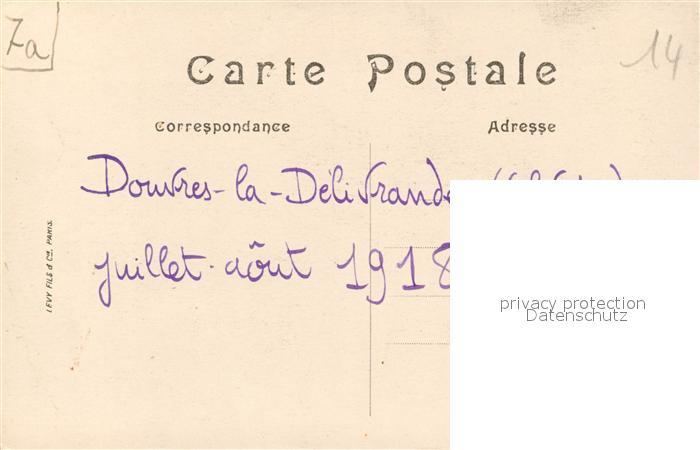 7a
14
Carte Postale
Correspondance
Adresse
Douvres-la-Délivrande
juillet-aôut 1918
LEVY FILS & Cie, PARIS.
privacy protection
Datenschutz